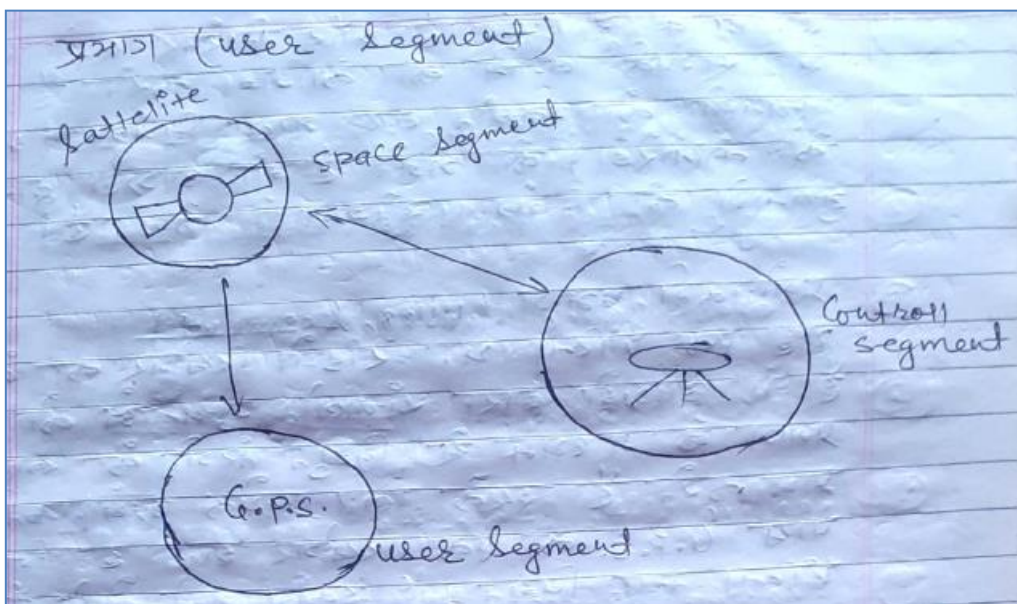 प्रभाग (user segment)
Sattelite
space segment
Controll
segment
G.P.S.
user segment